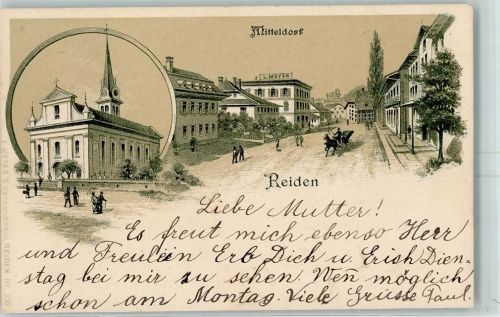 Mitteldorf
L. MEYER
Reiden
Liebe Mutter!
Es freut mich ebenso Herr
und Freulein Erb Dich u Erish Dien-
stag bei mir zu sehen. Weñ möglich
schon am Montag. Viele Grüsse Paul.